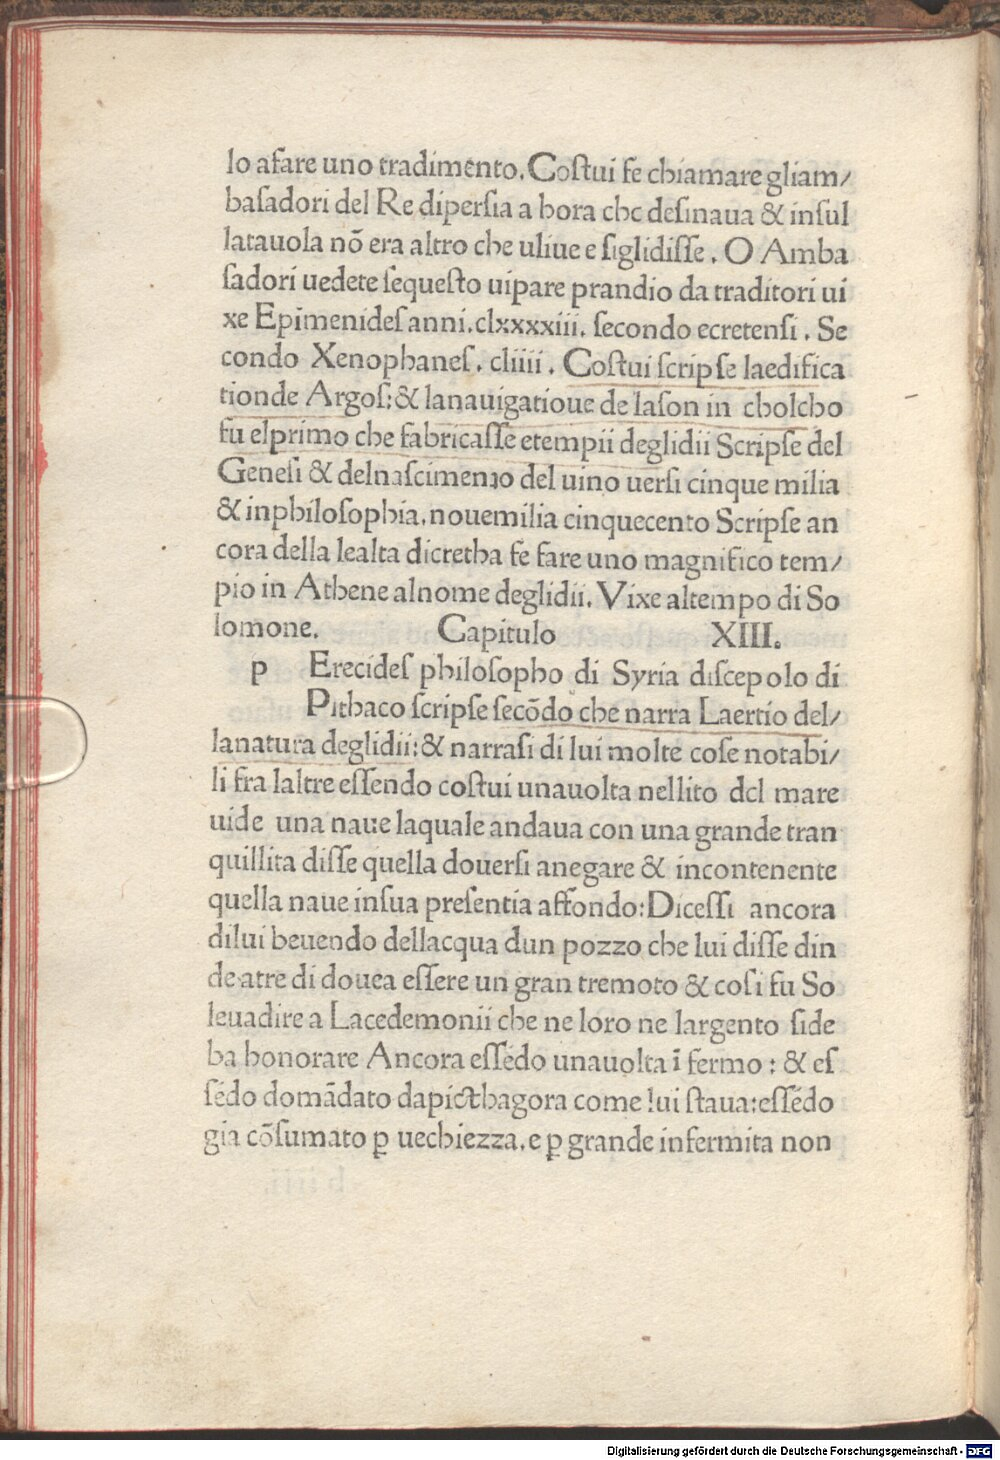 lo afare uno tradimento. Coſtui fe chiamare gliam/
baſadori del Re diperſia a hora che deſinaua & inſul
latauola nō era altro che uliue e ſiglidiſſe. O Amba
ſadori uedete ſequeſto uipare prandio da traditori ui
xe Epimenideſ anni.clxxxxiii. ſecondo ecretenſi. Se
condo Xenophaneſ. cliiii. Coſtui ſcripſe laedifica
tionde Argoſ:& lanauigatioue de Iaſon in cholcho
fu elprimo che fabricaſſe etempii deglidii Scripſe del
Geneſi & delnaſcimento del uino uerſi cinque milia
& inphiloſophia.nouemilia cinquecento Scripſe an
cora della lealta dicretha fe fare uno magnifico tem/
pio in Athene alnome deglidii. Vixe altempo di So
lomone. Capitulo XIII.
p Erecideſ philoſopho di Syria diſcepolo di
Pithaco ſcripſe ſecōdo che narra Laertio del/
lanatura deglidii:& narraſi di lui molte coſe notabi/
li fra laltre eſſendo coſtui unauolta nellito del mare
uide una naue laquale andaua con una grande tran
quillita diſſe quella douerſi anegare & incontenente
quella naue inſua preſentia affondo:Diceſſi ancora
dilui beuendo dellacqua dun pozzo che lui diſſe din
de atre di douea eſſere un gran tremoto & coſi fu So
leuadire a Lacedemonii che ne loro ne largento ſide
ba honorare Ancora eſſēdo unauolta ī fermo: & eſ
ſēdo domādato dapicthagora come lui ſtaua:eſſēdo
gia cōſumato ꝑ uechiezza.e ꝑ grande infermita non
Digitalisierung gefördert durch die Deutsche Forschungsgemeinschaft - DFG